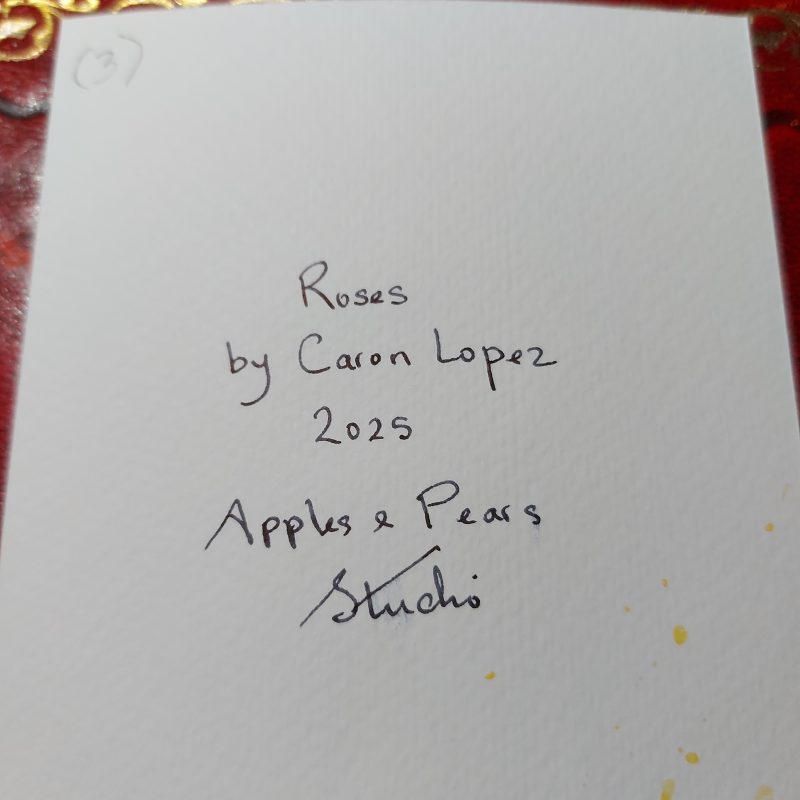 (3)
Roses
by Caron Lopez
2025
Apples & Pears
Studio